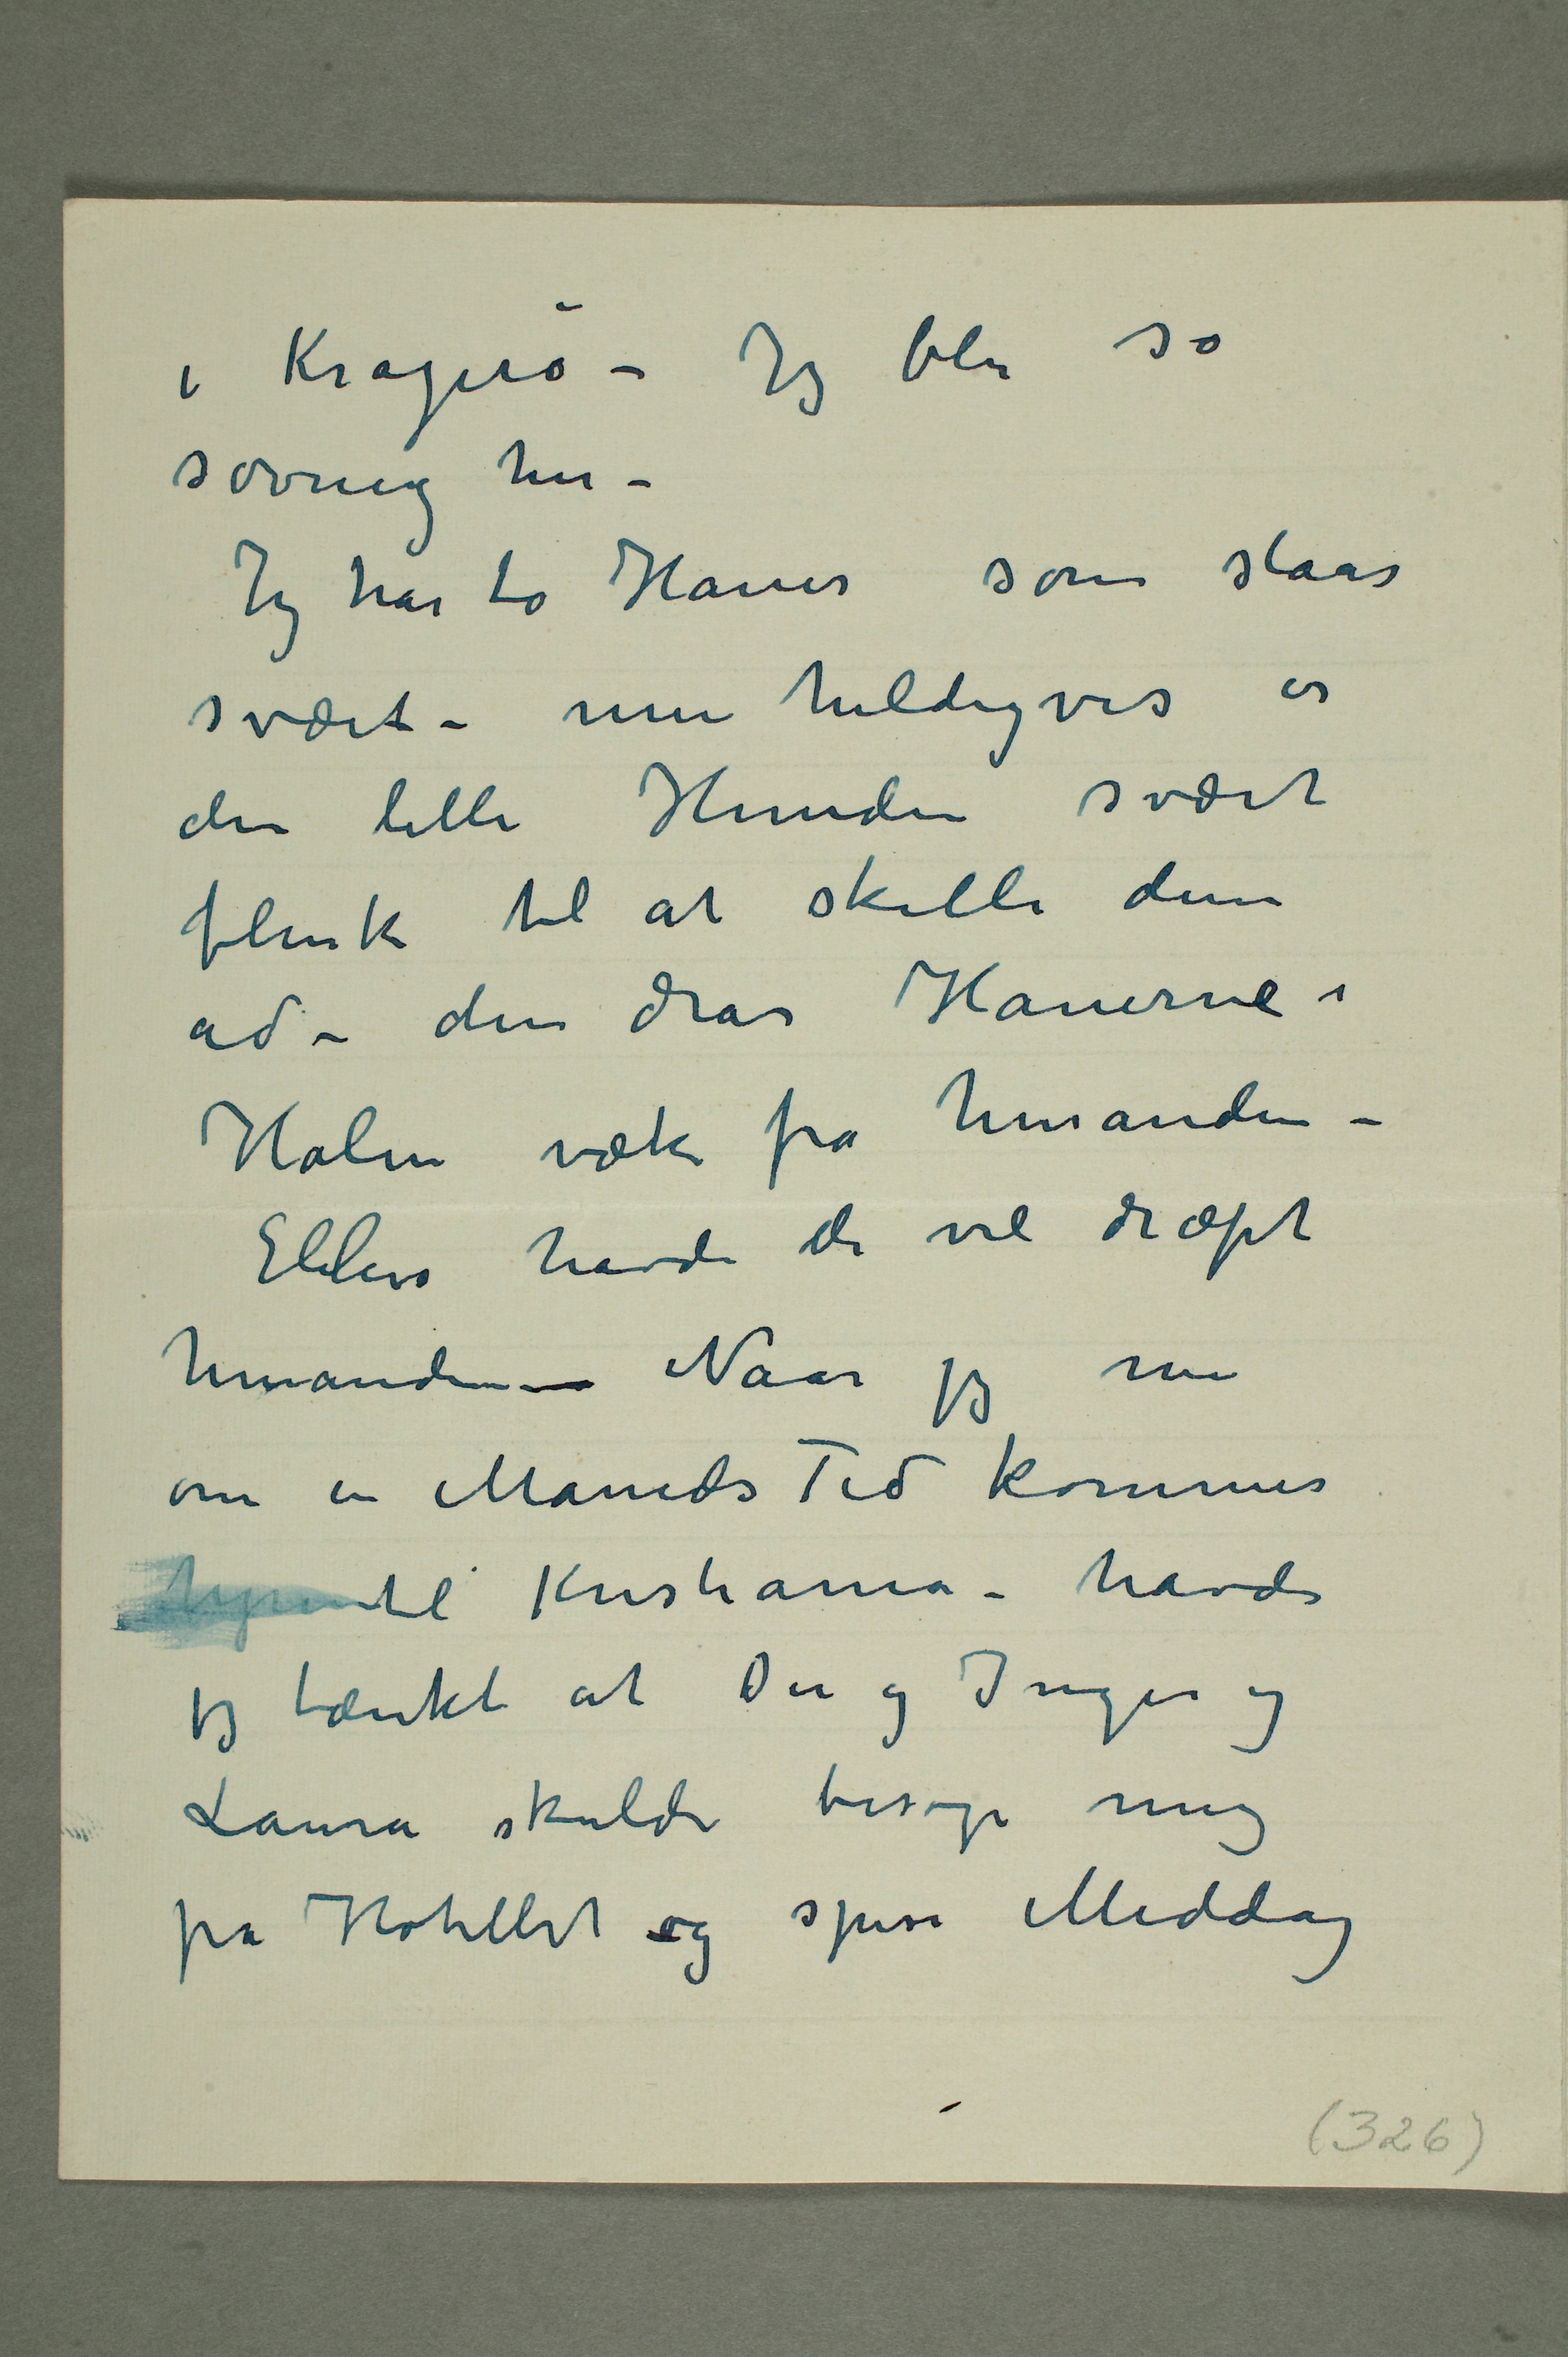 i Kragerö – Jeg blir så
søvnig her –
Jeg har to Haner som slaas
svært – men heldigvis er
den lille Hunden svært
flink til at skille dem
ad – den drar Hanerne i
Halen væk fra hinanden –
Ellers havde de vel dræpt
hinanden – Naar jeg nu
om en Maneds Tid kommer
hjem til Kristiania – havde
jeg tænkt at Du og Inger og
Laura skulde besøge mig
på Hotellet og spise Middag
(326)